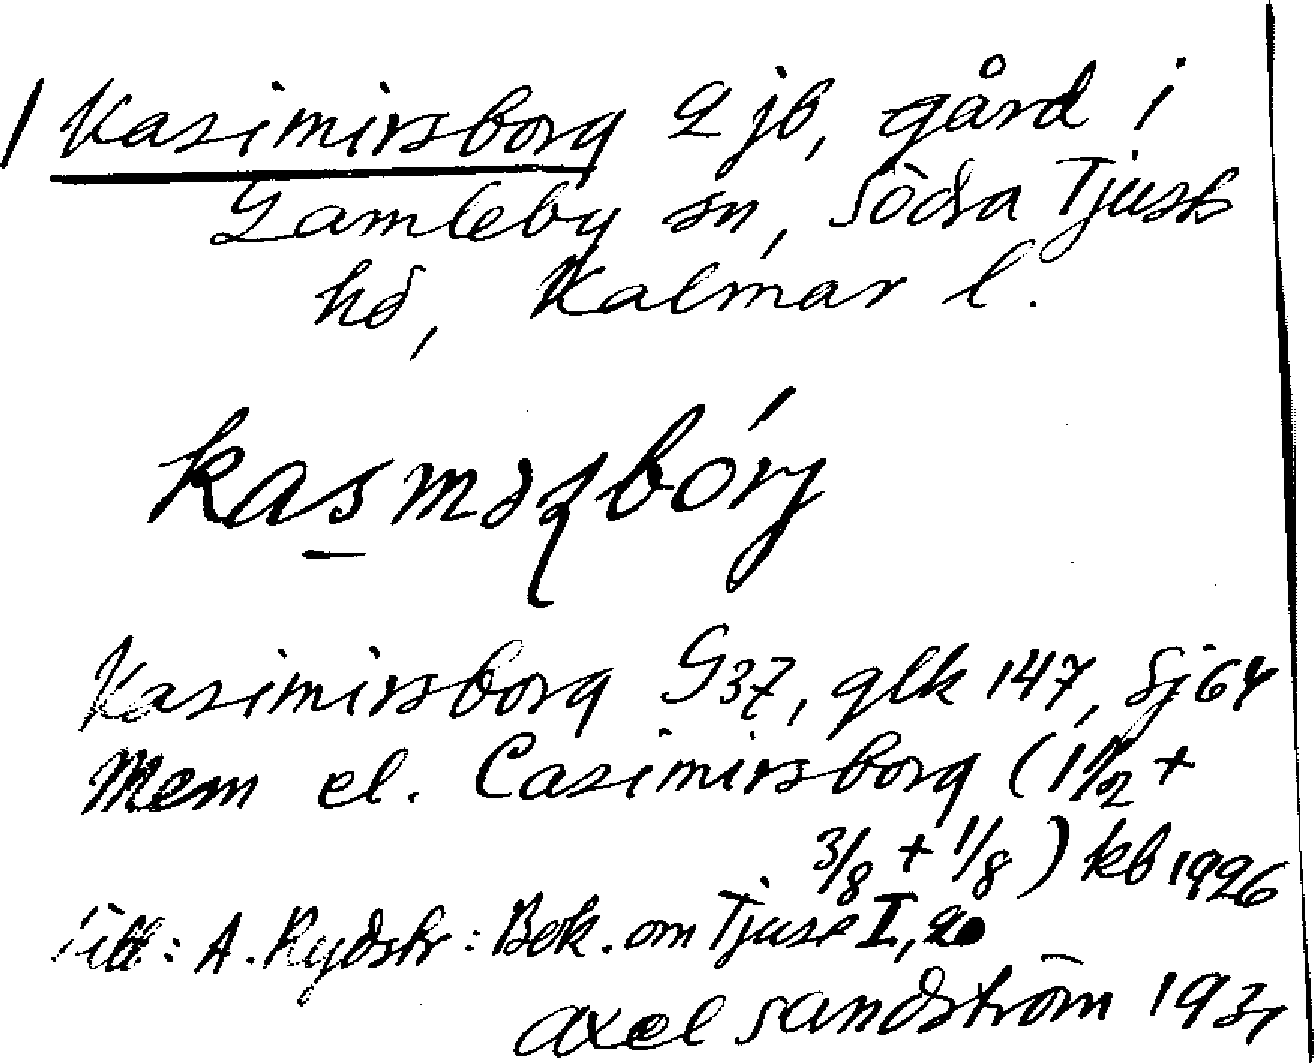 1 Kasimirsborg 2 jb, gård i
Gamleby sn, Södra Tjusts
hd, Kalmar l.
kasməʐbórj
Kasimirsborg G37, glk 147, Sj 64
Mem el. Casimirsborg (1 1/2 +
3/8 + 1/8) kb 1926
Litt: A. Rydstr: Bok. om Tjust I, 20
Axel Sandström 1931